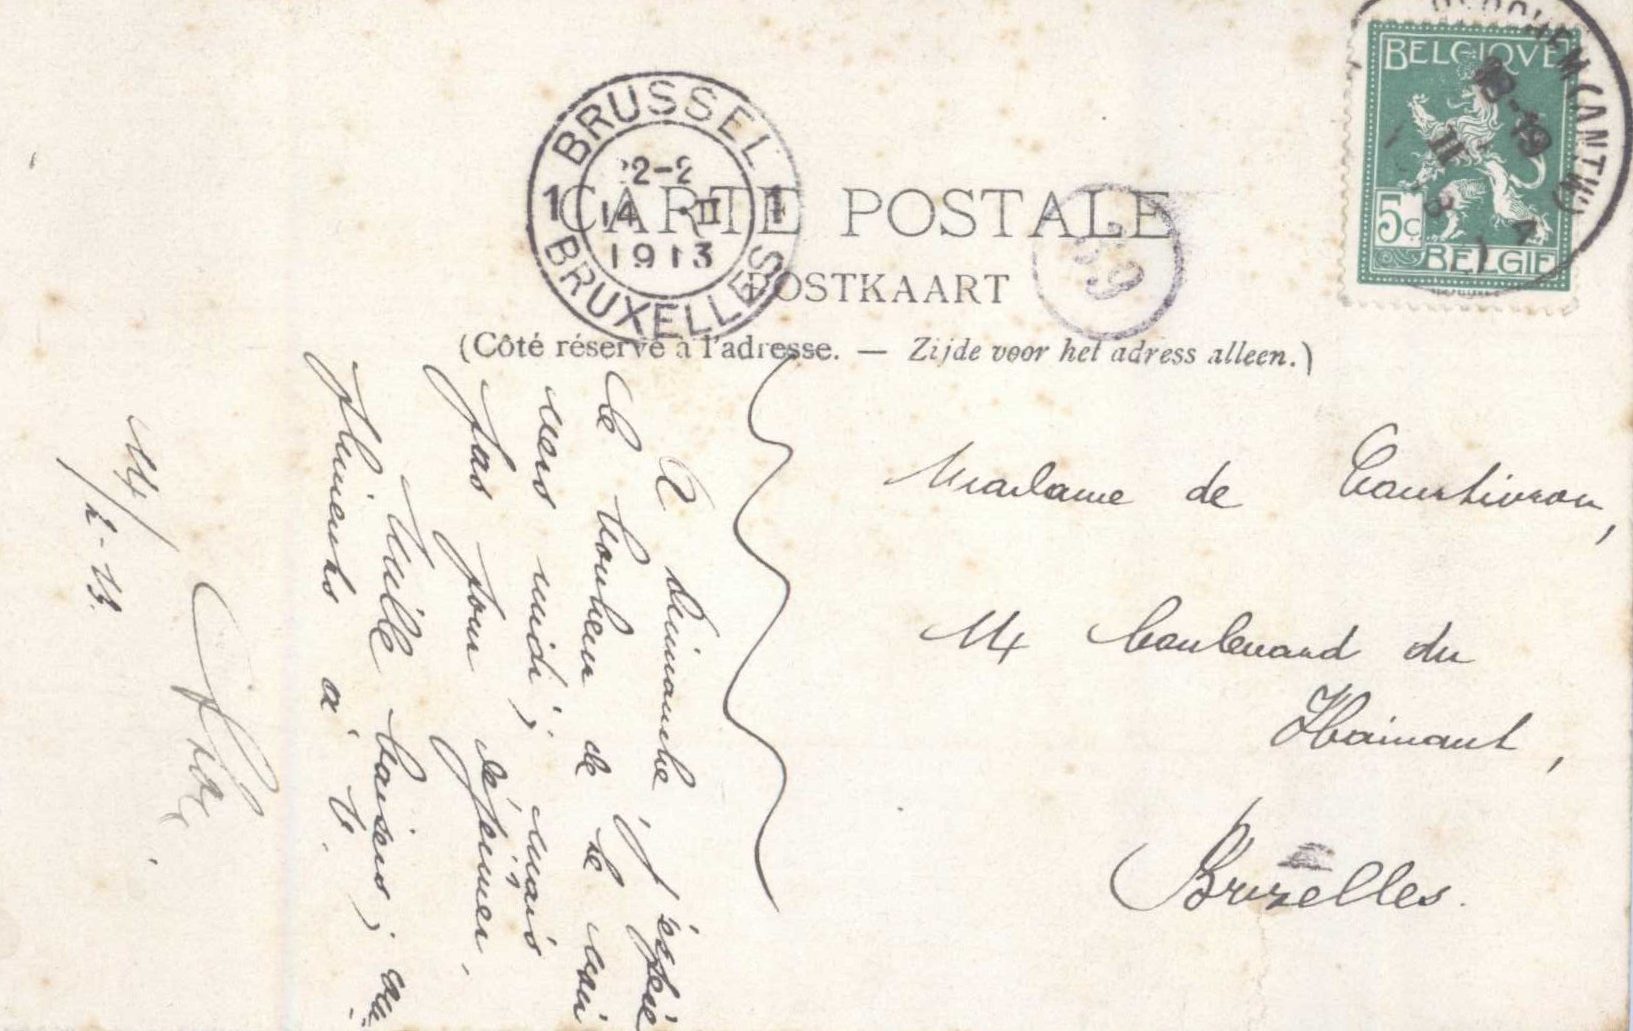 BRUSSEL
1 1
14 II
1913
BRUXELLES
CARTE POSTALE
POSTKAART
(Côté réservé à l'adresse. — Zijde voor het adress alleen.)
BELGIQUE
5c
BELGIË
Madame de Courtivron,
14 boulevard du
Hainaut,
Bruxelles.
A dimanche, j'espère
le bonheur de te voir
vers midi; mais
pas pour déjeuner.
Mille baisers;
à
14/2-13.